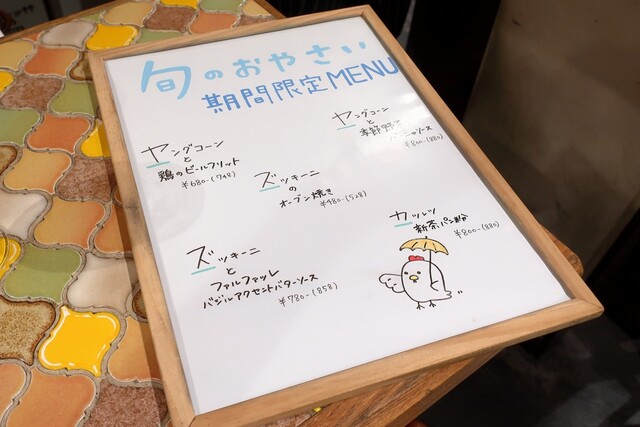 旬のおやさい
期間限定MENU
ヤングコーン
と
鶏のビールフリット
¥680-(748)
ヤングコーン
と
季節野菜
ソース
¥800-(880)
ズッキーニ
の
オーブン焼き
¥480-(528)
カツレツ
新茶パン粉
¥800-(880)
ズッキーニ
と
ファルファッレ
バジルアクセントバターソース
¥780-(858)